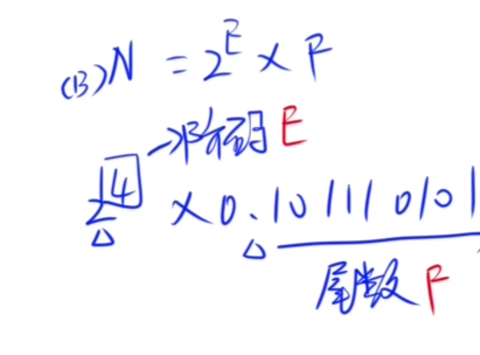 (B) N = 2^E × F
→阶码 E
2^4 × 0.101110101
尾数 F